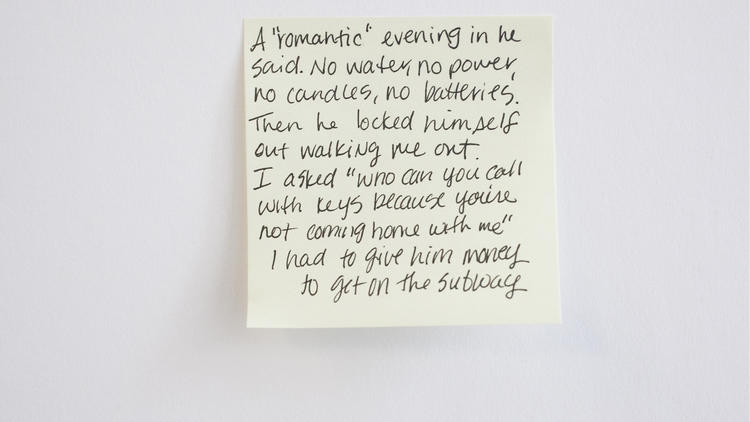 A "romantic" evening in he
said. No water, no power,
no candles, no batteries.
Then he locked himself
out walking me out.
I asked "who can you call
with keys because you're
not coming home with me"
I had to give him money
to get on the subway